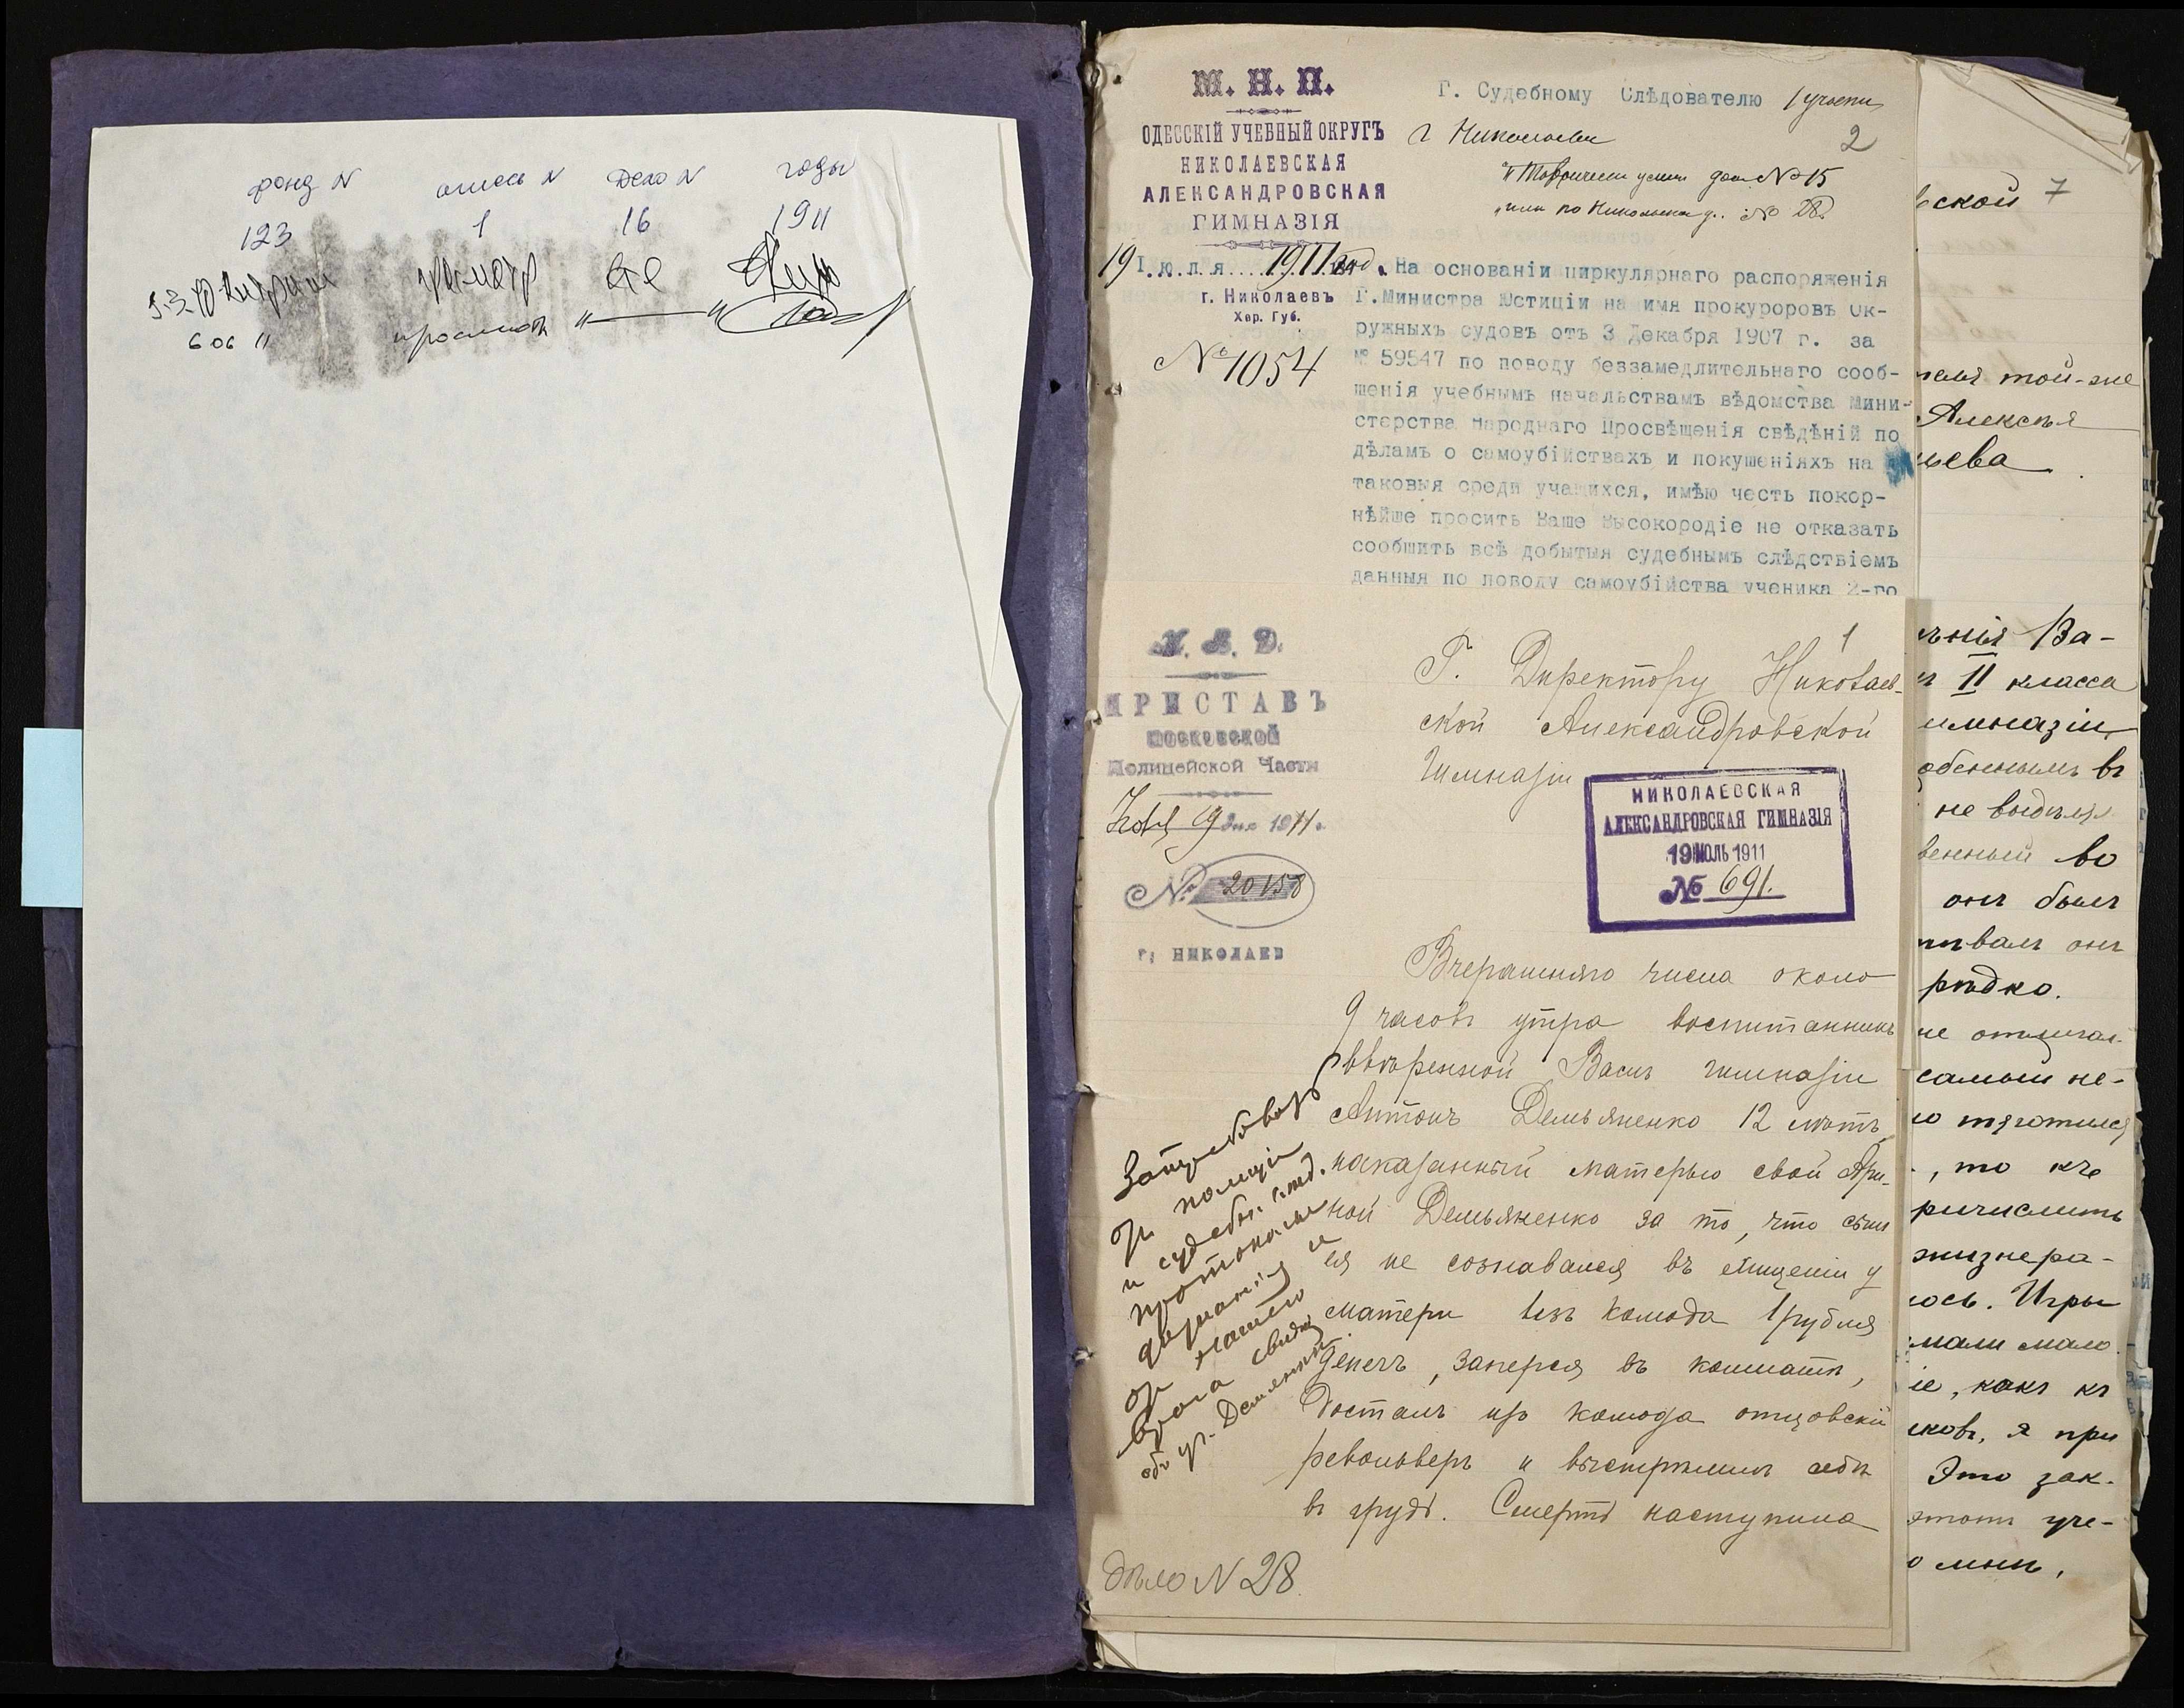 фонд N опись N Дело N годы
123 1 16 1911
М. Н. П.
ОДЕССКІЙ УЧЕБНЫЙ ОКРУГЪ
НИКОЛАЕВСКАЯ
АЛЕКСАНДРОВСКАЯ
ГИМНАЗІЯ
19 Іюля 1911
г. Николаевъ
Хер. Губ.
№ 1054
Г. Судебному Слѣдователю 1 участк
г Николаева
2
дом № 15
№ 28.
На основаніи циркулярнаго распоряженія
Г.Министра Юстиціи на имя прокуроровъ Ок-
ружныхъ судовъ отъ 3 Декабря 1907 г. за
№ 59547 по поводу беззамедлительнаго сооб-
щенія учебнымъ начальствамъ вѣдомства Мини-
стерства Народнаго Просвѣщенія свѣдѣній по
дѣламъ о самоубійствахъ и покушеніяхъ на
таковыя среди учащихся, имѣю честь покор-
нѣйше просить Ваше Высокородіе не отказать
сообщить всѣ добытыя судебнымъ слѣдствіемъ
данныя по поводу самоубійства ученика 2-го
М. В. Д.
ПРИСТАВЪ
Московской
Полицейской Части
19 дня 1911 г.
№ 20158
г. НИКОЛАЕВ
1
Г. Директору Николаев-
ской Александровской
Гимназіи
НИКОЛАЕВСКАЯ
АЛЕКСАНДРОВСКАЯ ГИМНАЗІЯ
19 ИЮЛЬ 1911
№ 691.
Вчерашняго числа около
9 часовъ утра воспитанникъ
ввѣренной Вамъ гимназіи
Антонъ Демьяненко 12 лѣтъ
наказанный матерью своей Ари-
ной Демьяненко за то, что сынъ
ея не сознавался въ хищеніи у
матери изъ комода 1 рубля
денегъ, заперся въ комнатѣ,
досталъ изъ комода отцовскій
револьверъ и выстрѣлилъ себѣ
въ грудь. Смерть наступила
полиціи
и судебн. слѣд.
протоколы
дознанія и
врача
дѣло N 28
вской 7
теля той-же
Алексѣя
ьева
ѣнія Ва-
II класса
имназіи
обеннымъ въ
не выдѣлял
венный во
онъ былъ
ывалъ онъ
рѣдко.
не отличал-
самый не-
ю тяготился
, то къ
ричислить
жизнера-
ось. Игры
мали мало.
іе, какъ къ
ковъ, я при
Это зак-
этотъ уче-
о мнѣ,